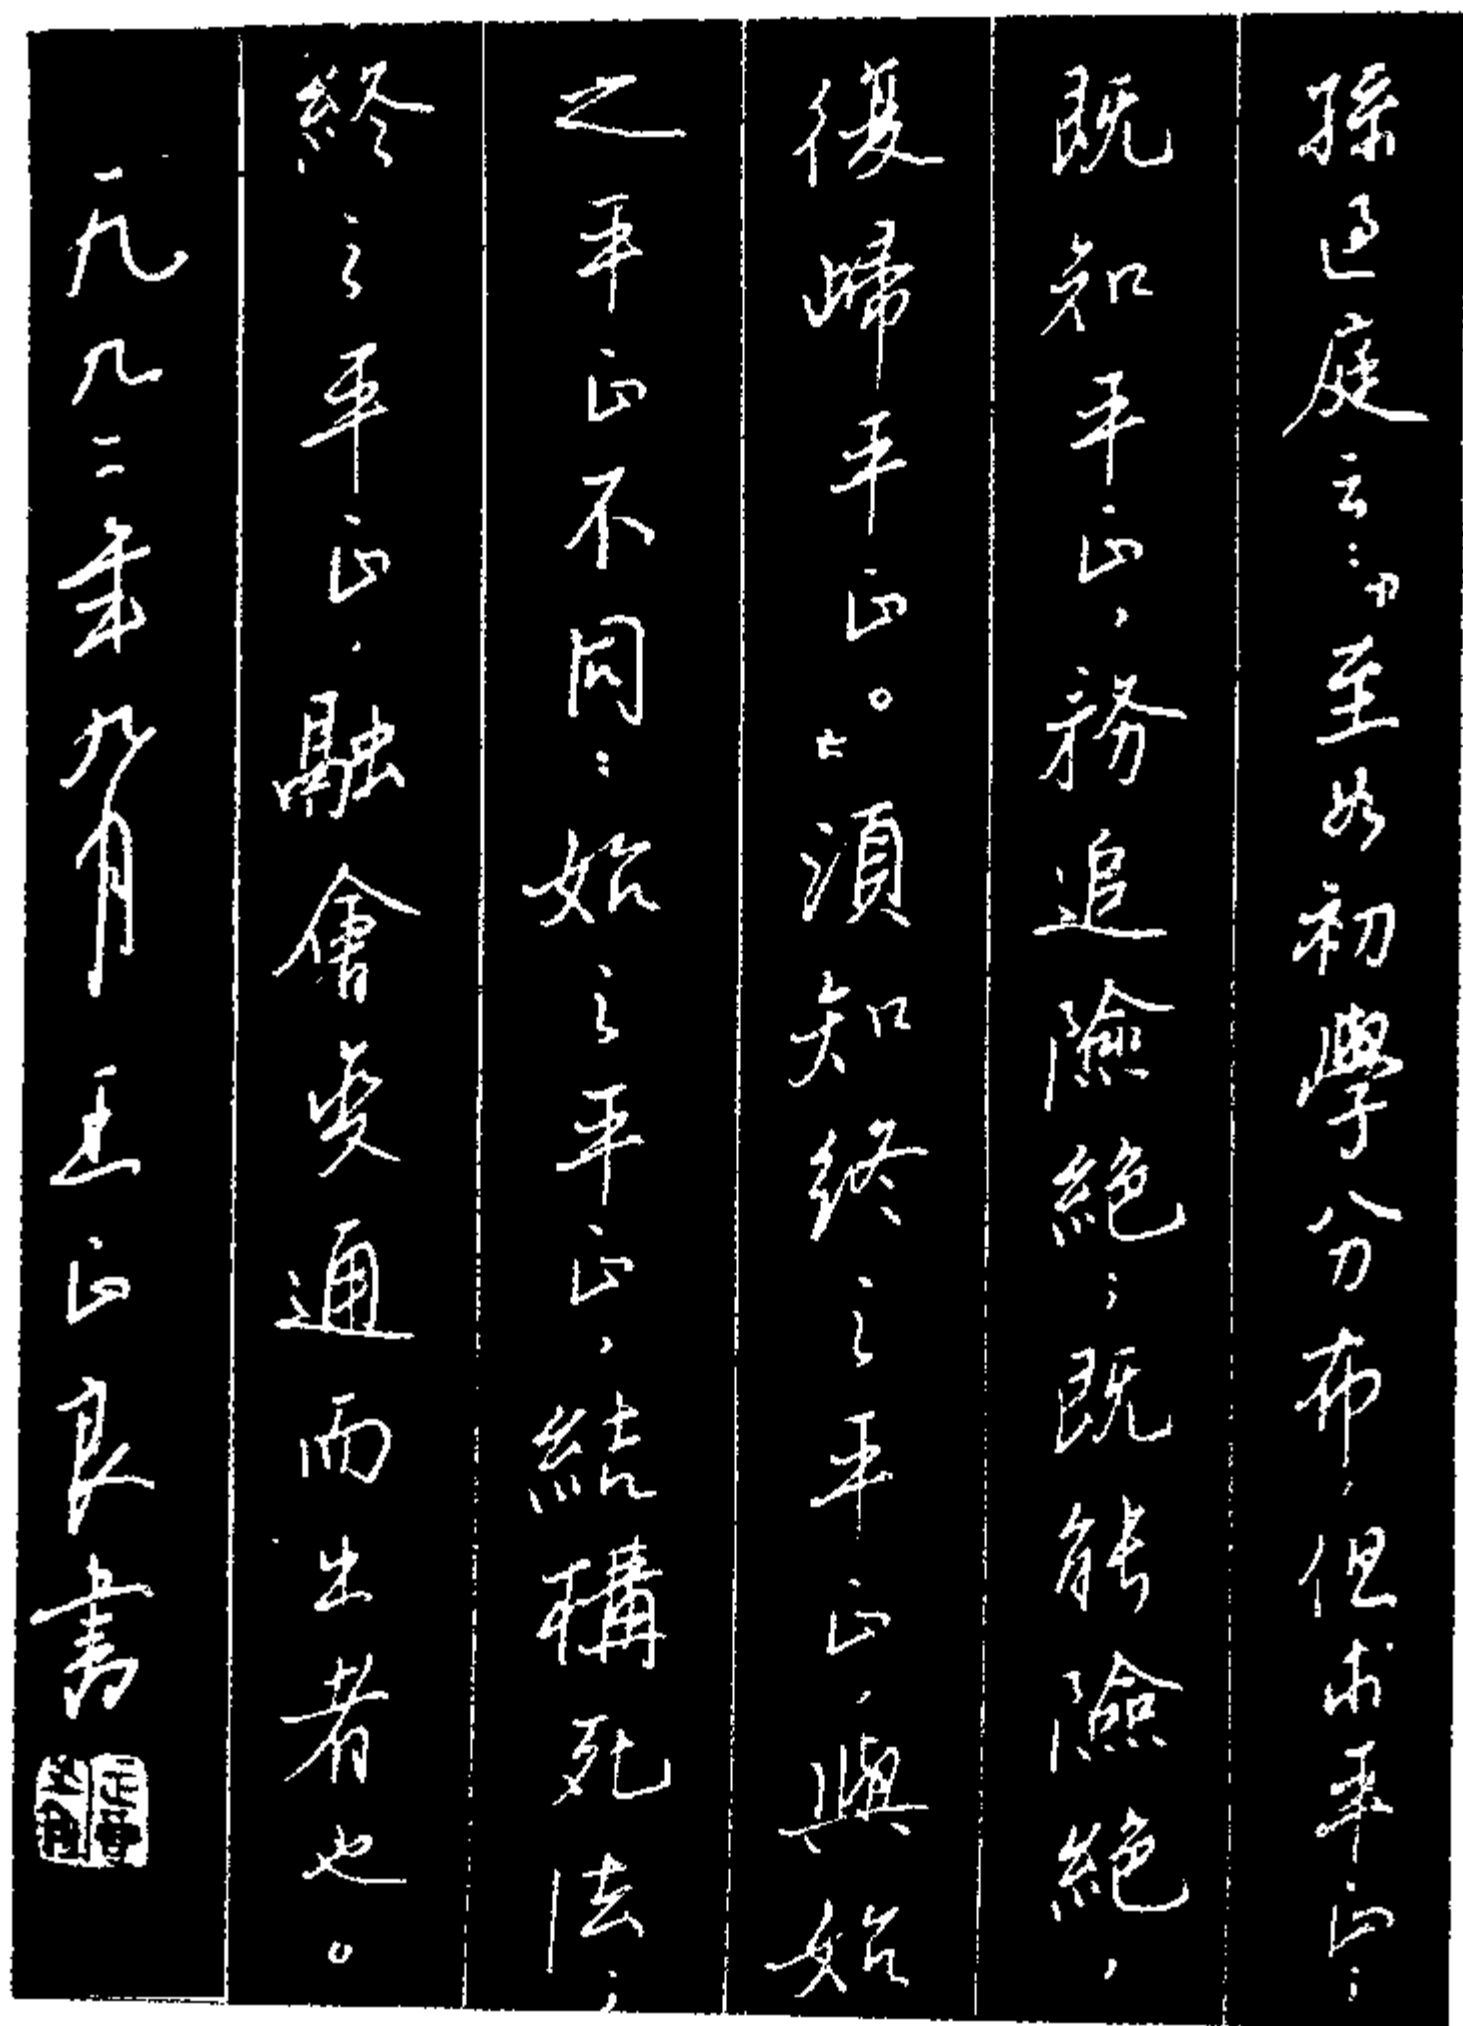 孫过庭云：“至如初學分布，但求平正；
既知平正，務追險絕；既能險絕，
復歸平正。”須知终之平正，與始
之平正不同：始之平正，結構死法；
終之平正，融會变通而出者也。
一九九二年九月王正良書